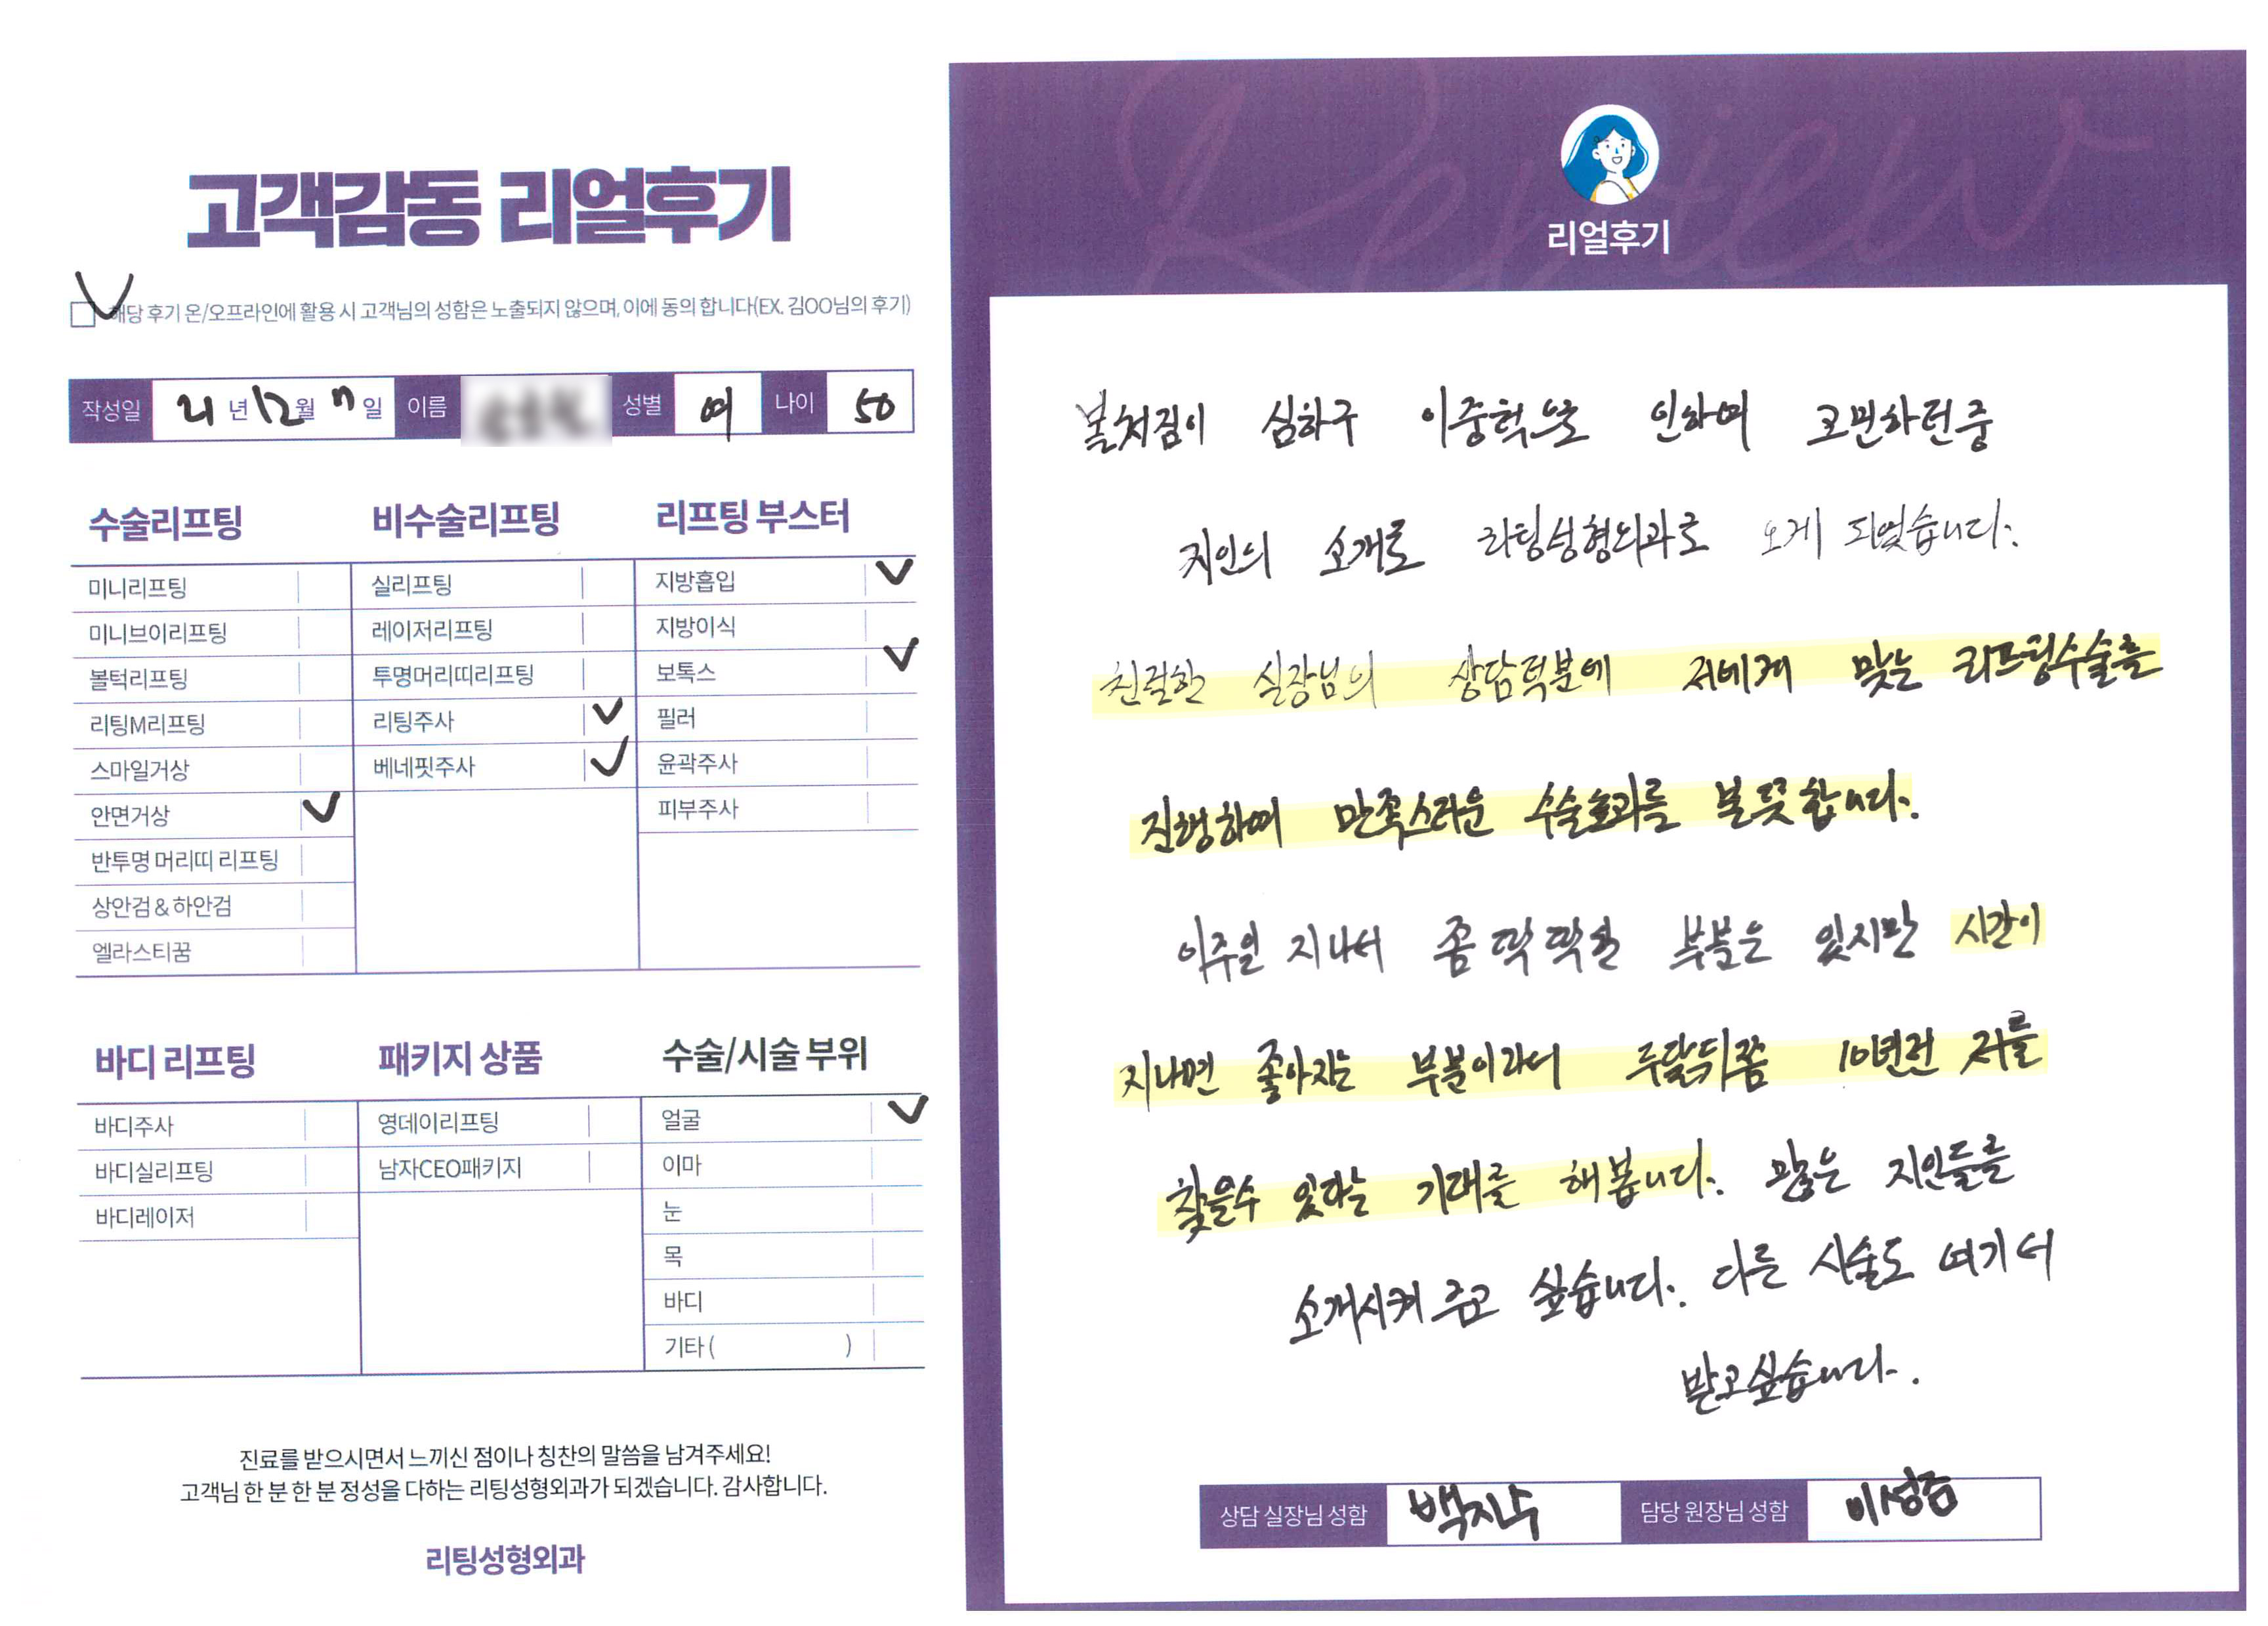 고객감동 리얼후기
해당 후기 온/오프라인에 활용 시 고객님의 성함은 노출되지 않으며, 이에 동의 합니다(EX. 김OO님의 후기)
작성일 21년 12월 일 이름 성별 여 나이 50
수술리프팅
미니리프팅
미니브이리프팅
볼턱리프팅
리팅M리프팅
스마일거상
안면거상
반투명 머리띠 리프팅
상안검 & 하안검
엘라스티꿈
비수술리프팅
실리프팅
레이저리프팅
투명머리띠리프팅
리팅주사
베네핏주사
리프팅 부스터
지방흡입
지방이식
보톡스
필러
윤곽주사
피부주사
바디 리프팅
바디주사
바디실리프팅
바디레이저
패키지 상품
영데이리프팅
남자CEO패키지
수술/시술 부위
얼굴
이마
눈
목
바디
기타 ( )
진료를 받으시면서 느끼신 점이나 칭찬의 말씀을 남겨주세요!
고객님 한 분 한 분 정성을 다하는 리팅성형외과가 되겠습니다. 감사합니다.
리팅성형외과
Review
리얼후기
볼처짐이 심하구 이중턱으로 인하여 고민하던중
지인의 소개로 리팅성형외과로 오게 되었습니다.
친절한 실장님의 상담덕분에 저에게 맞는 리프팅수술을
진행하여 만족스러운 수술효과를 합니다.
이주일 지나서 좀 딱딱한 부분은 있지만 시간이
지나면 좋아지는 부분이라서 두달뒤쯤 10년전 저를
찾을수 있다는 기대를 해봅니다. 많은 지인들을
소개시켜 주고 싶습니다. 다른 시술도 여기서
받고싶습니다.
상담 실장님 성함 백지수 담당 원장님 성함